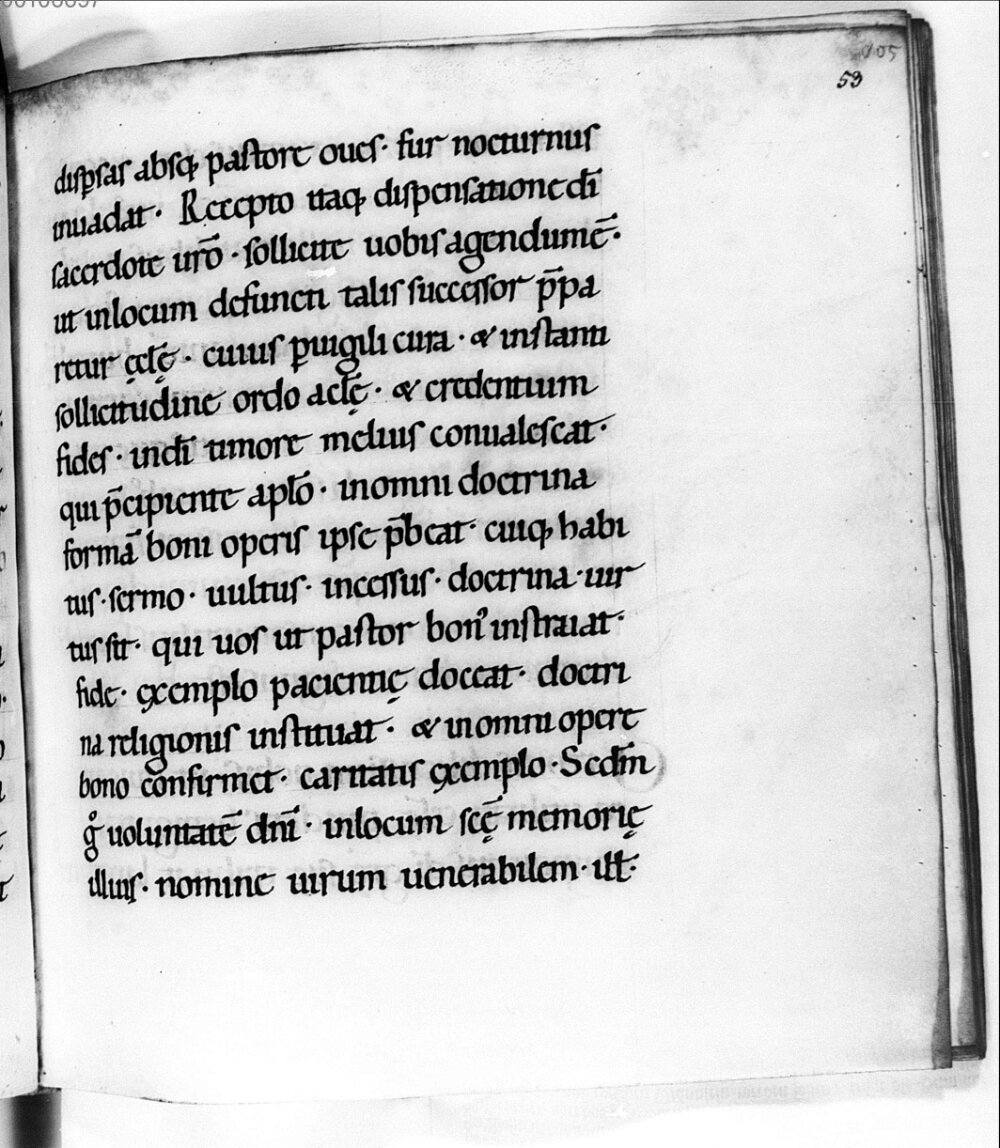 105
53
disp̱sas absq; pastore oues· fur nocturnus
inuadat· Recepto itaq; dispensatione dī
sacerdote ur̄o · sollicite uobis agendum ē·
ut in locum defuncti talis successor p̄pa
retur ęcl̄ę· cuius p̱uigili cura · & instanti
sollicitudine ordo æcl̄ę· & credentium
fides· in dī timore melius conualescat·
qui p̄cipiente apl̄o· in omni doctrina
formā boni operis ipse p̄beat· cuiq; habi
tus· sermo· uultus· incessus· doctrina· uir
tus sit· qui uos ut pastor bonꝰ instruat·
fide· ęxemplo pacientię doceat· doctri
na religionis instituat· & in omni opere
bono confirmet· caritatis ęxemplo· Scdm̄
gͦ uoluntatē dn̄i· in locum sc̄ę memorię
illius· nomine uirum uenerabilem· ilł·